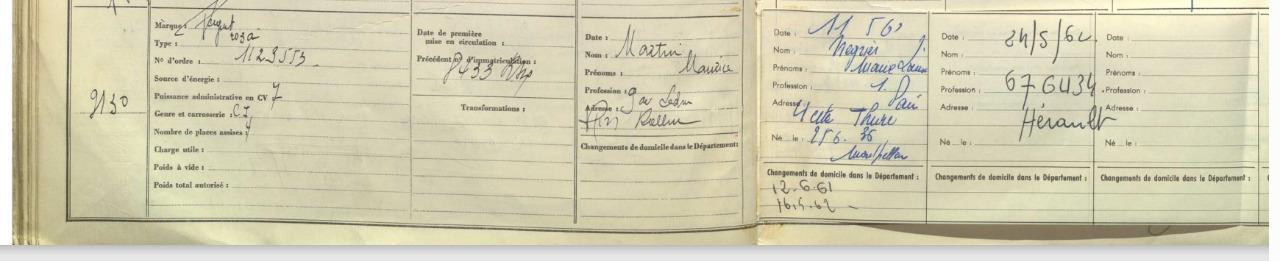 9130
Marque : Peugeot
Type : 203a
N° d'ordre : 1123553
Source d'énergie :
Puissance administrative en CV 7
Genre et carrosserie : C I
Nombre de places assises :
Charge utile :
Poids à vide :
Poids total autorisé :
Date de première
mise en circulation :
Précédent n° d'immatriculation :
8433
Transformations :
Date :
Nom : Martin
Prénoms : Maurice
Profession :
Adresse :
Rollin
Changements de domicile dans le Département :
Date : 11 5 61
Nom : Negrier J.
Prénoms : Marie Louise
Profession :
Adresse :
Né le : 25 6. 36
Montpellier
Changements de domicile dans le Département :
12-6-61
16.5.62
Date : 24/5/62
Nom :
Prénoms :
Profession : 676U34
Adresse :
Hérault
Né le :
Changements de domicile dans le Département :
Date :
Nom :
Prénoms :
Profession :
Adresse :
Né le :
Changements de domicile dans le Département :